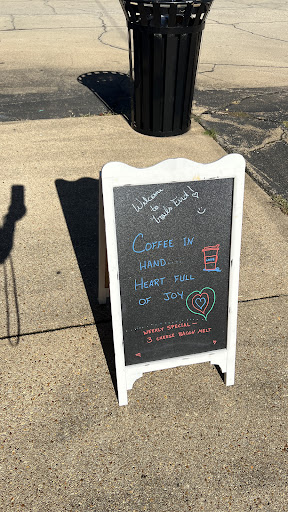 Welcome
to
Trails End!
COFFEE IN
HAND....
HEART FULL
OF JOY
WEEKLY SPECIAL -
3 CHEESE BACON MELT